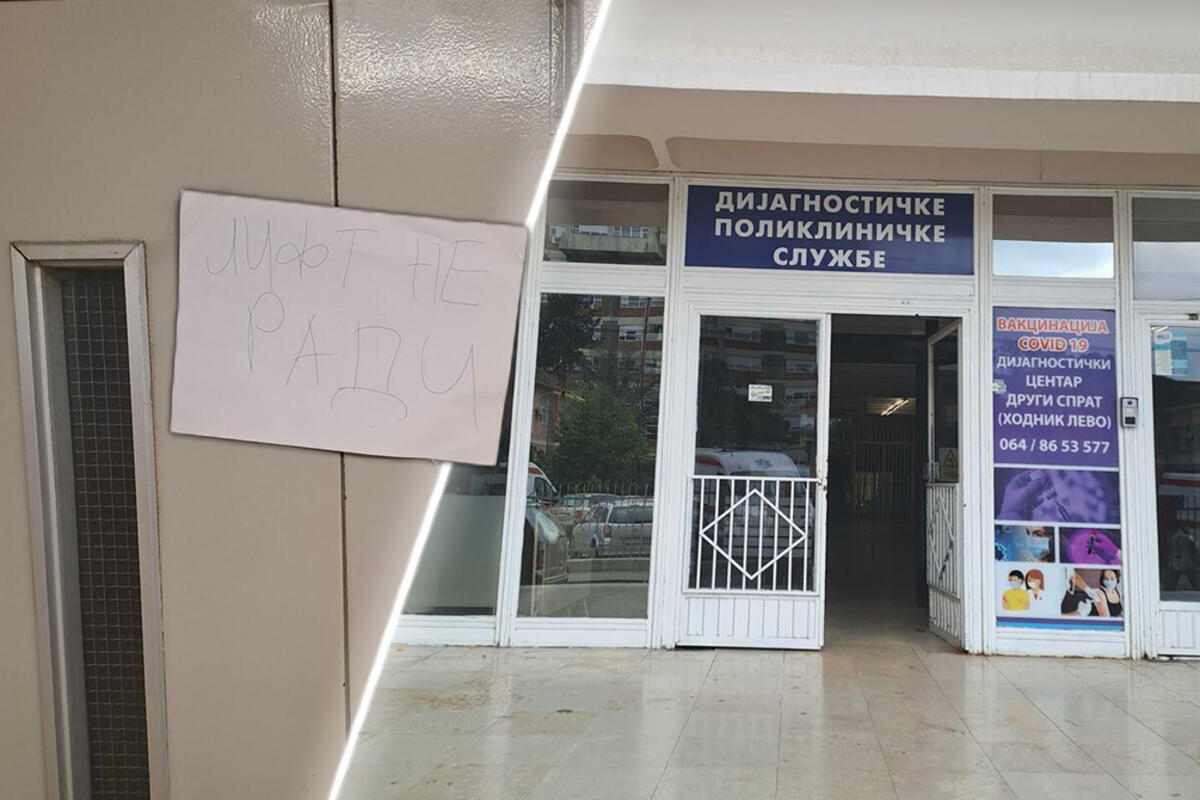 ЛИФТ НЕ
РАДИ
ДИЈАГНОСТИЧКЕ
ПОЛИКЛИНИЧКЕ
СЛУЖБЕ
ВАКЦИНАЦИЈА
COVID 19
ДИЈАГНОСТИЧКИ
ЦЕНТАР
ДРУГИ СПРАТ
(ХОДНИК ЛЕВО)
064 / 86 53 577